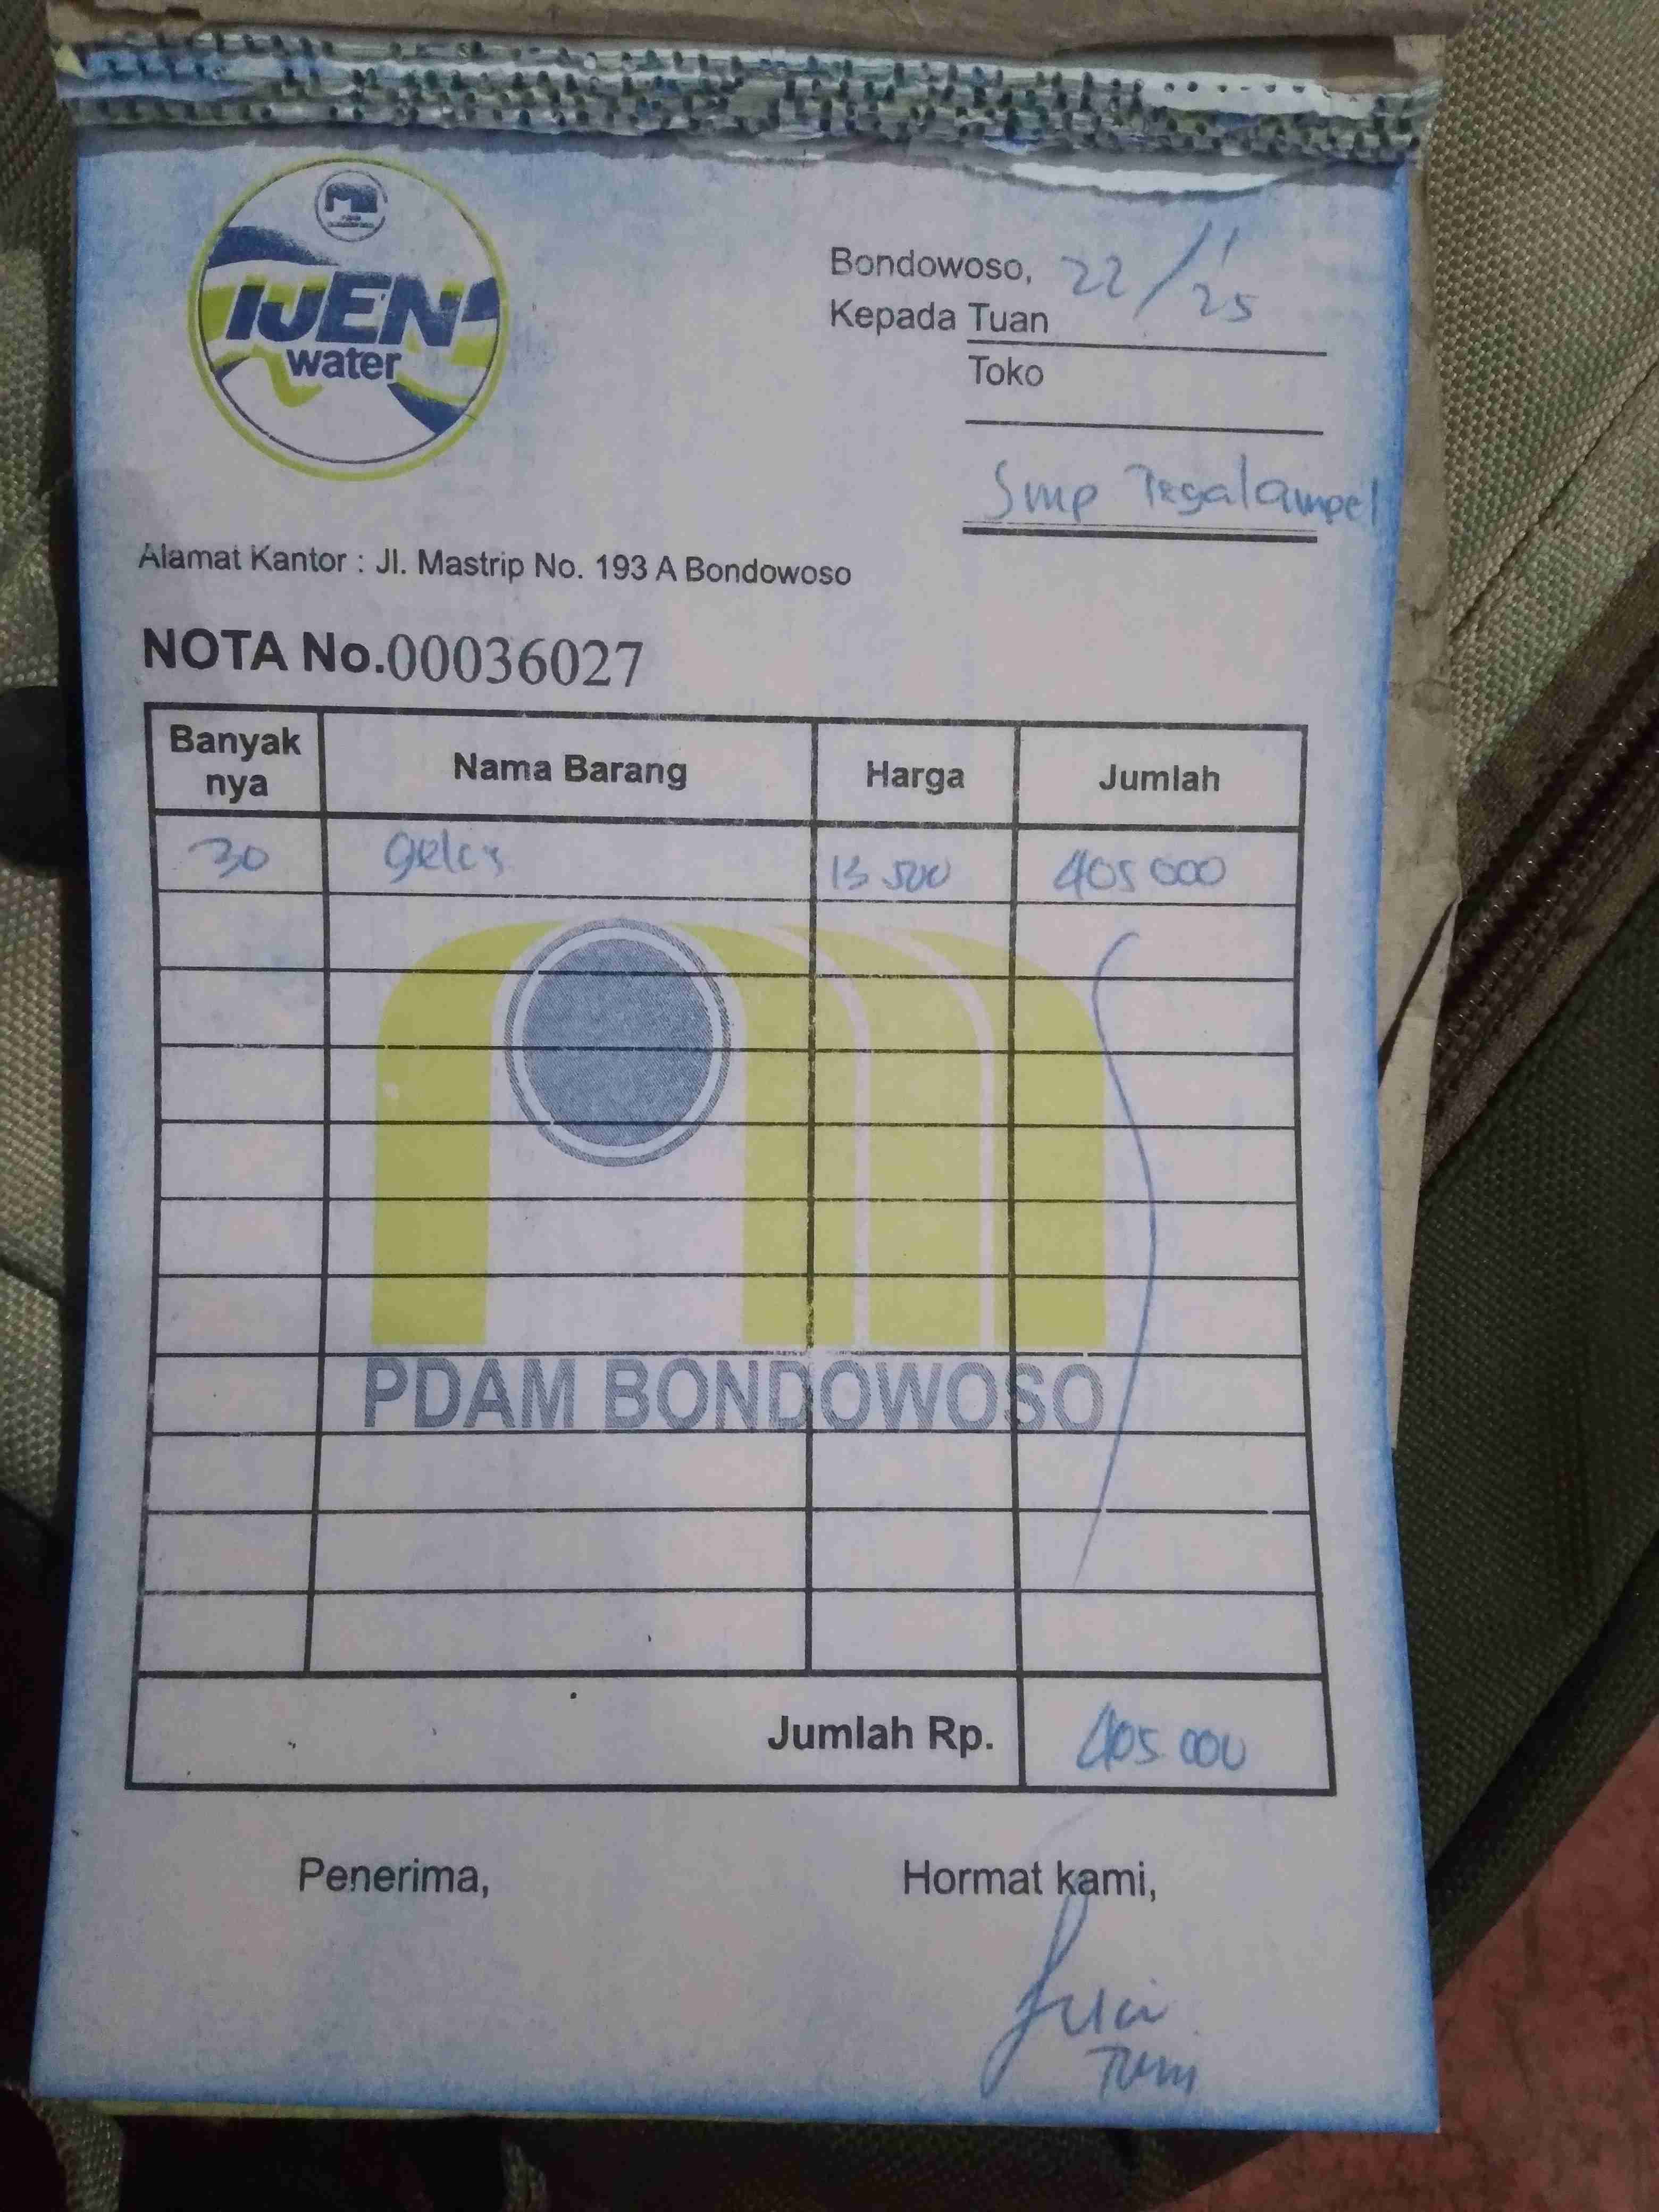 IJEN
water
Bondowoso, 22/1 '25
Kepada Tuan
Toko
Smp Tegalampel
Alamat Kantor : Jl. Mastrip No. 193 A Bondowoso
NOTA No.00036027
Banyak nya Nama Barang Harga Jumlah
30 gelas 13 500 405 000
PDAM BONDOWOSO
Jumlah Rp. 405 000
Penerima, Hormat kami,